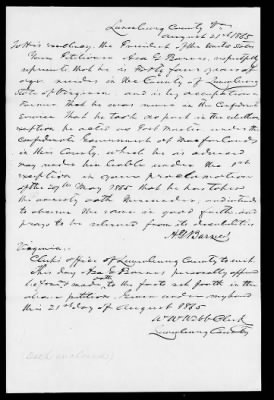 Lunenburg County Va
August 21st 1865
To His Excellency, the President of the United States
Your Petitioner Asa G Barnes, respectfully
represents that he is Forty four years of
age resides in the County of Lunenburg
State of Virginia, and is by occupation a
Farmer that he was never in the Confederate
Service that he took no part in the rebellion
exception he acted as Post Master under the
Confederate Government at
in this County, which he is advised
may render him liable under the 1st
exception in your proclamation
of the 29th May 1865 that he has taken
the amnesty oath hereunder, and intends
to observe the same in good faith and
prays to be relieved from its disabilities
A G Barnes
Virginia..
Clerk's office of Lunenburg County to wit
This day Asa G Barnes personally appeared
before me & made oath to the facts set forth in the
above petition Given under my hand
this 21st day of August 1865
W W Webb Clerk
Lunenburg County
(Oath enclosed)